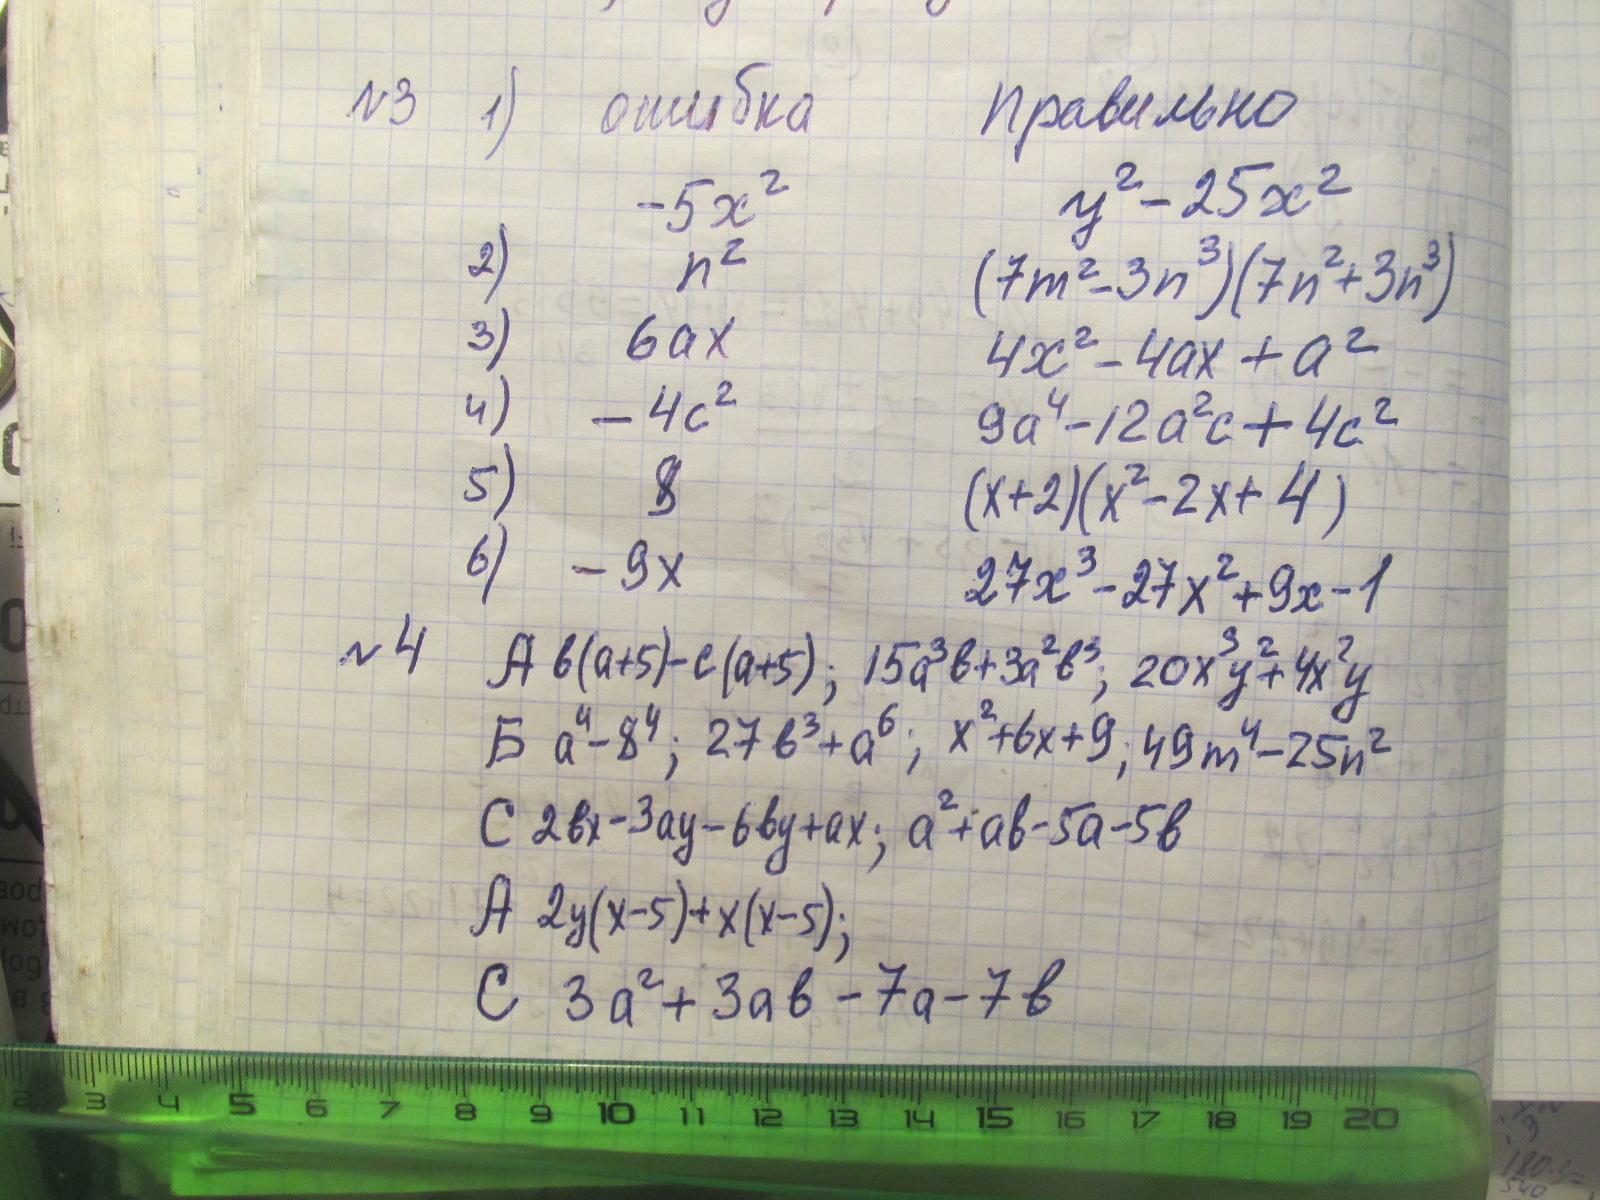 №3 1) ошибка Правильно
-5x² y² - 25x²
2) n² (7m² - 3n³)(7n² + 3n³)
3) 6ax 4x² - 4ax + a²
4) - 4c² 9a⁴ - 12a²c + 4c²
5) 8 (x+2)(x² - 2x + 4)
6) - 9x 27x³ - 27x² + 9x - 1
№4 А в(a+5) - c(a+5); 15a³в + 3a²в³; 20x³y² + 4x²y
Б a⁴ - 8⁴; 27в³ + a⁶; x² + 6x + 9; 49m⁴ - 25n²
С 2вx - 3ay - 6вy + ax; a² + aв - 5a - 5в
А 2y(x-5) + x(x-5);
С 3a² + 3aв - 7a - 7в
2 3 4 5 6 7 8 9 10 11 12 13 14 15 16 17 18 19 20